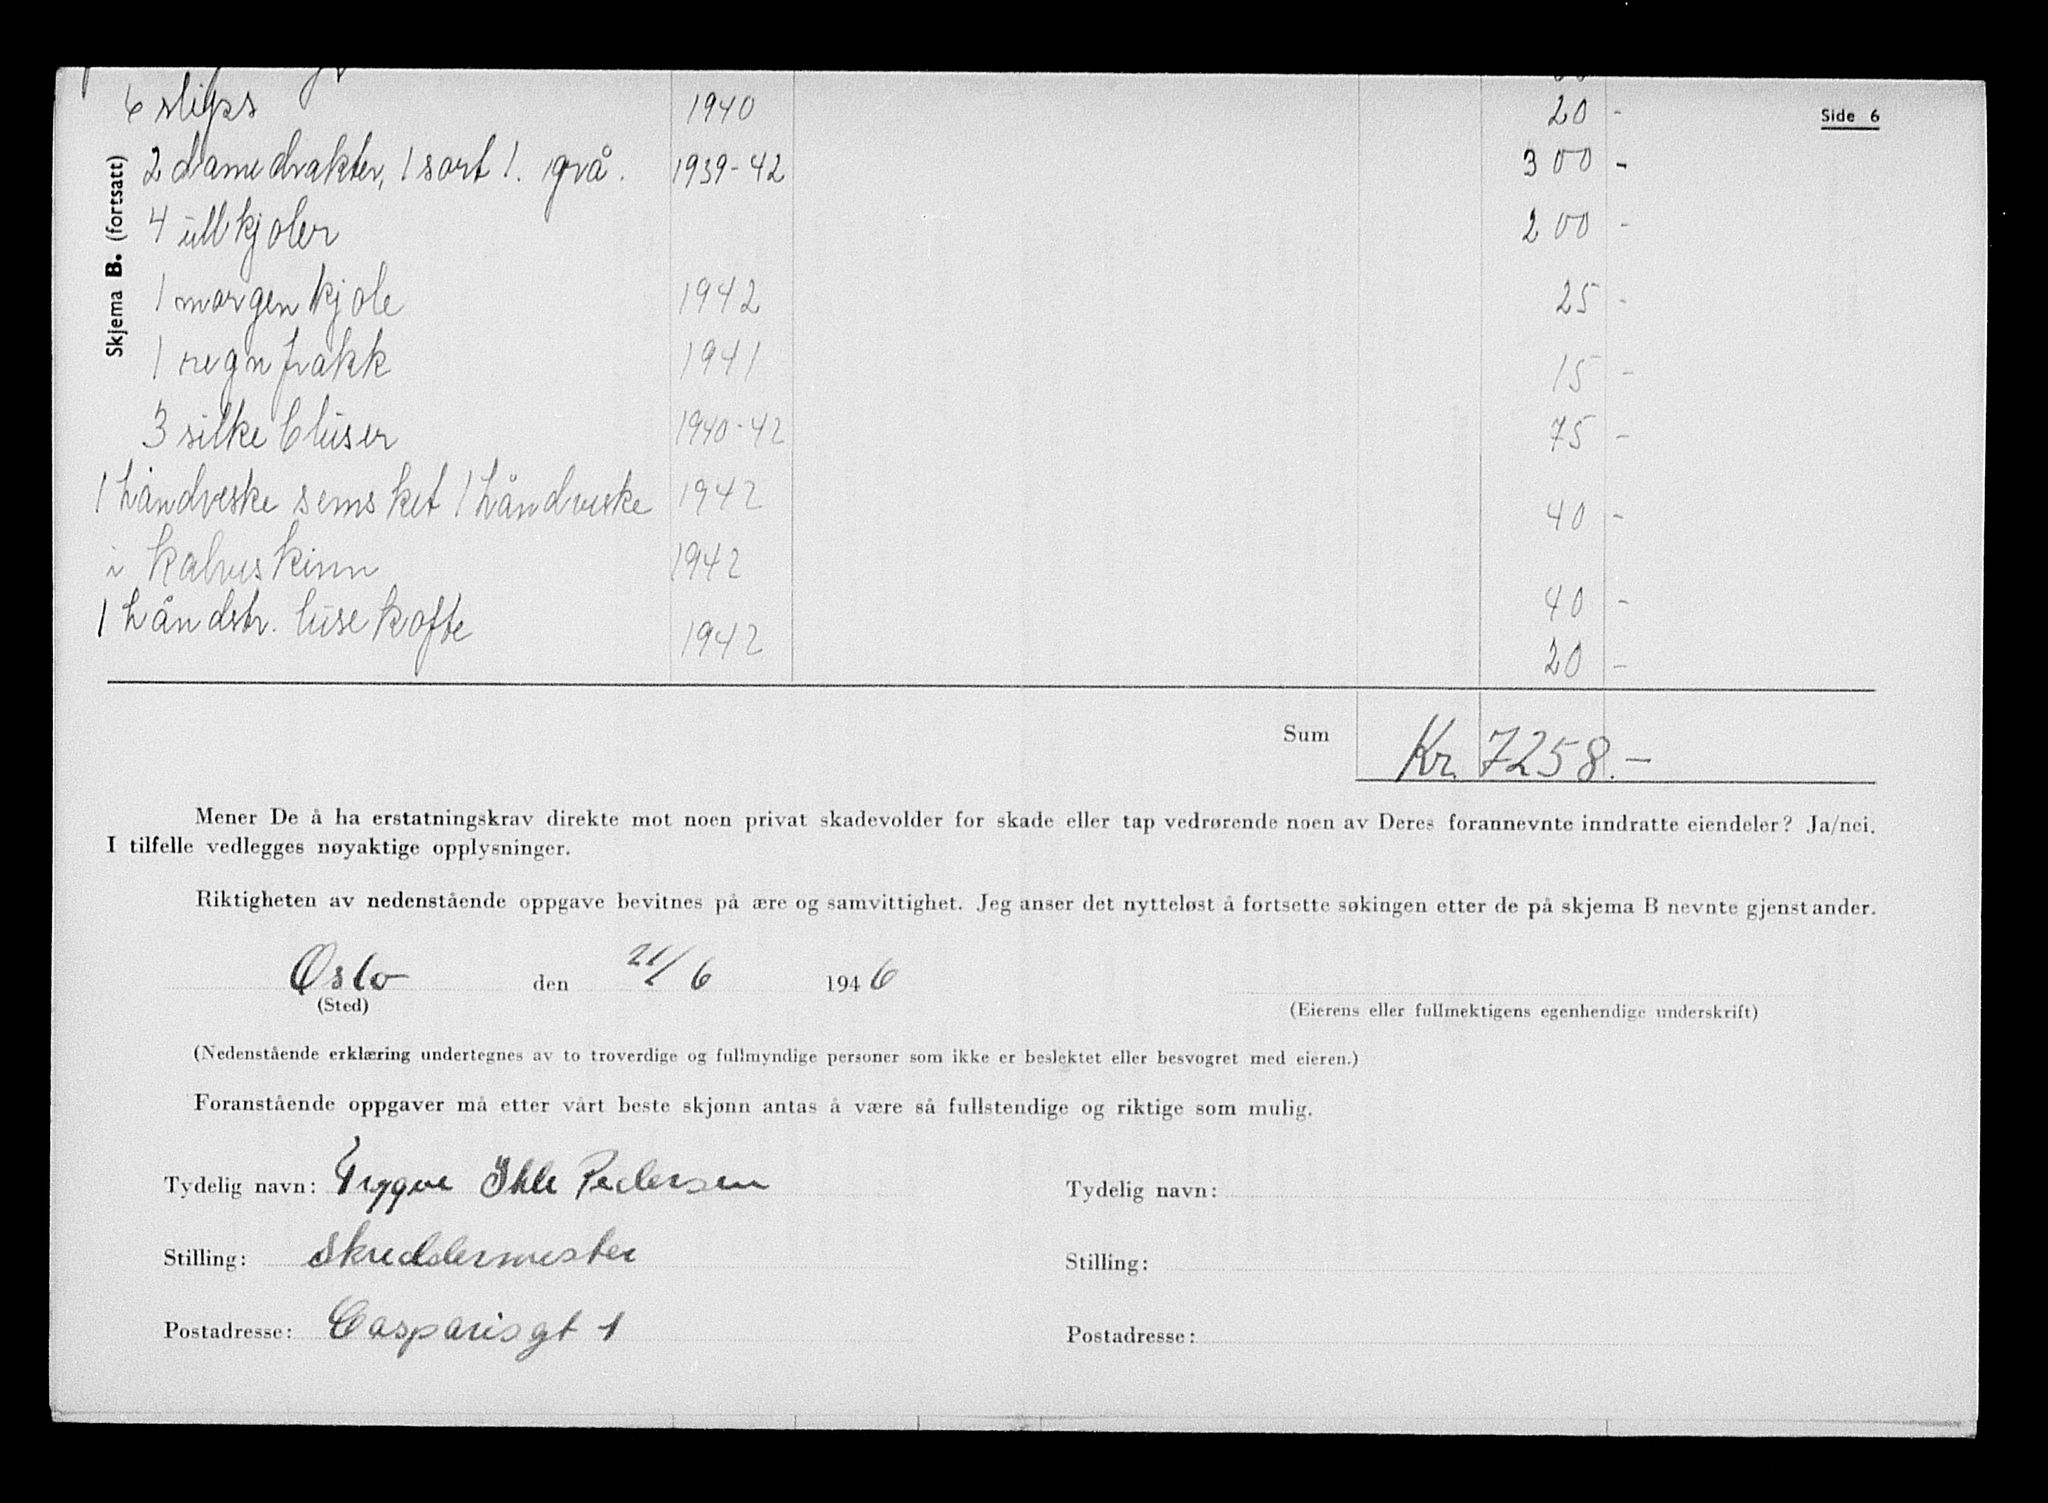 Side 6
Skjema B. (fortsatt)
6 slips 1940 20 -
2 damedrakter, 1 sort 1. grå. 1939-42 300 -
4 ullkjoler 200 -
1 morgenkjole 1942 25 -
1 regnfrakk 1941 15 -
3 silkebluser 1940-42 75 -
1 håndveske semsket 1 håndveske 1942 40 -
i kalveskinn 1942 40 -
1 håndstr. lusekofte 1942 20 -
Sum Kr. 7258.-
Mener De å ha erstatningskrav direkte mot noen privat skadevolder for skade eller tap vedrørende noen av Deres forannevnte inndratte eiendeler? Ja/nei.
I tilfelle vedlegges nøyaktige opplysninger.
Riktigheten av nedenstående oppgave bevitnes på ære og samvittighet. Jeg anser det nytteløst å fortsette søkingen etter de på skjema B nevnte gjenstander.
Oslo den 21/6 1946
(Sted) (Eierens eller fullmektigens egenhendige underskrift)
(Nedenstående erklæring undertegnes av to troverdige og fullmyndige personer som ikke er beslektet eller besvogret med eieren.)
Foranstående oppgaver må etter vårt beste skjønn antas å være så fullstendige og riktige som mulig.
Tydelig navn: Trygve Ihle Pedersen Tydelig navn:
Stilling: Skreddermester Stilling:
Postadresse: Casparisgt 1 Postadresse: